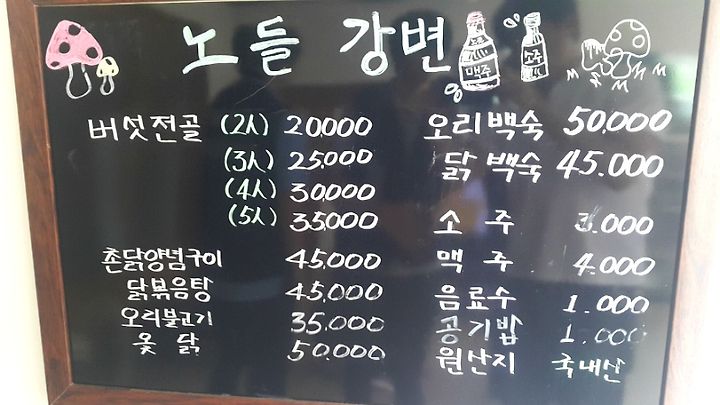 노들 강변
맥주
소주
버섯전골 (2人) 20,000
(3人) 25,000
(4人) 30,000
(5人) 35,000
촌닭양념구이 45,000
닭볶음탕 45,000
오리불고기 35,000
옻닭 50,000
오리백숙 50,000
닭백숙 45,000
소주 3,000
맥주 4,000
음료수 1,000
공기밥 1,000
원산지 국내산